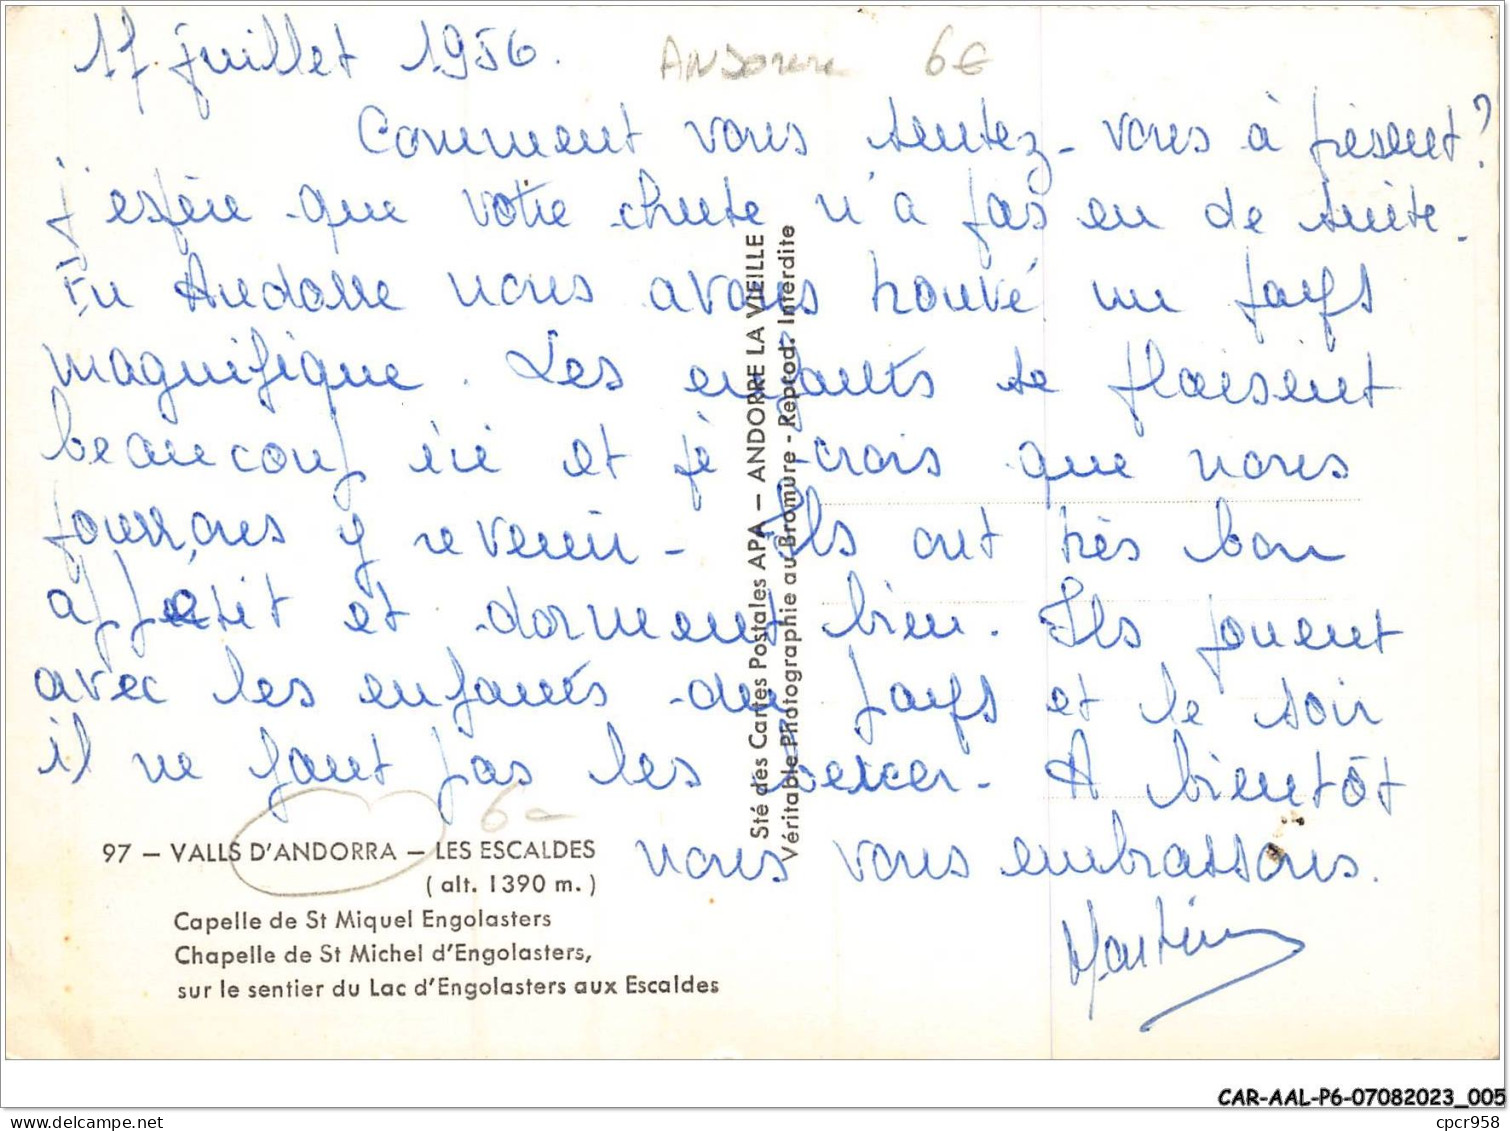 17 juillet 1956.
ANDORRE 6€
Comment vous sentez-vous à présent?
j'espère que votre chute n'a pas eu de suite.
En Andorre nous avons trouvé un pays
magnifique. Les enfants se plaisent
beaucoup ici et je crois que nous
pourrons y revenir - Ils ont très bon
appétit et dorment bien. Ils jouent
avec les enfants du pays et le soir
il ne faut pas les bercer - A bientôt
nous vous embrassons.
97 — VALLS D'ANDORRA — LES ESCALDES
( alt. 1390 m. )
Capelle de St Miquel Engolasters
Chapelle de St Michel d'Engolasters,
sur le sentier du Lac d'Engolasters aux Escaldes
Sté des Cartes Postales APA — ANDORRE LA VIEILLE
Véritable Photographie au Bromure - Reprod. Interdite
CAR-AAL-P6-07082023_005
https://www.delcampe.net
cpcr958